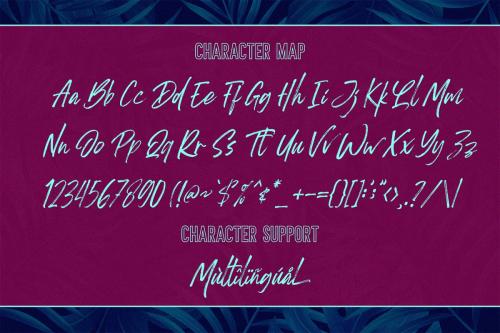 CHARACTER MAP
Aa Bb Cc Dd Ee Ff Gg Hh Ii Jj Kk Ll Mm
Nn Oo Pp Qq Rr Ss Tt Uu Vv Ww Xx Yy Zz
1234567890 (!@~`$%^¢*_ +-={}[]:;"<>,.?/\|
CHARACTER SUPPORT
Múltîlïñgúål